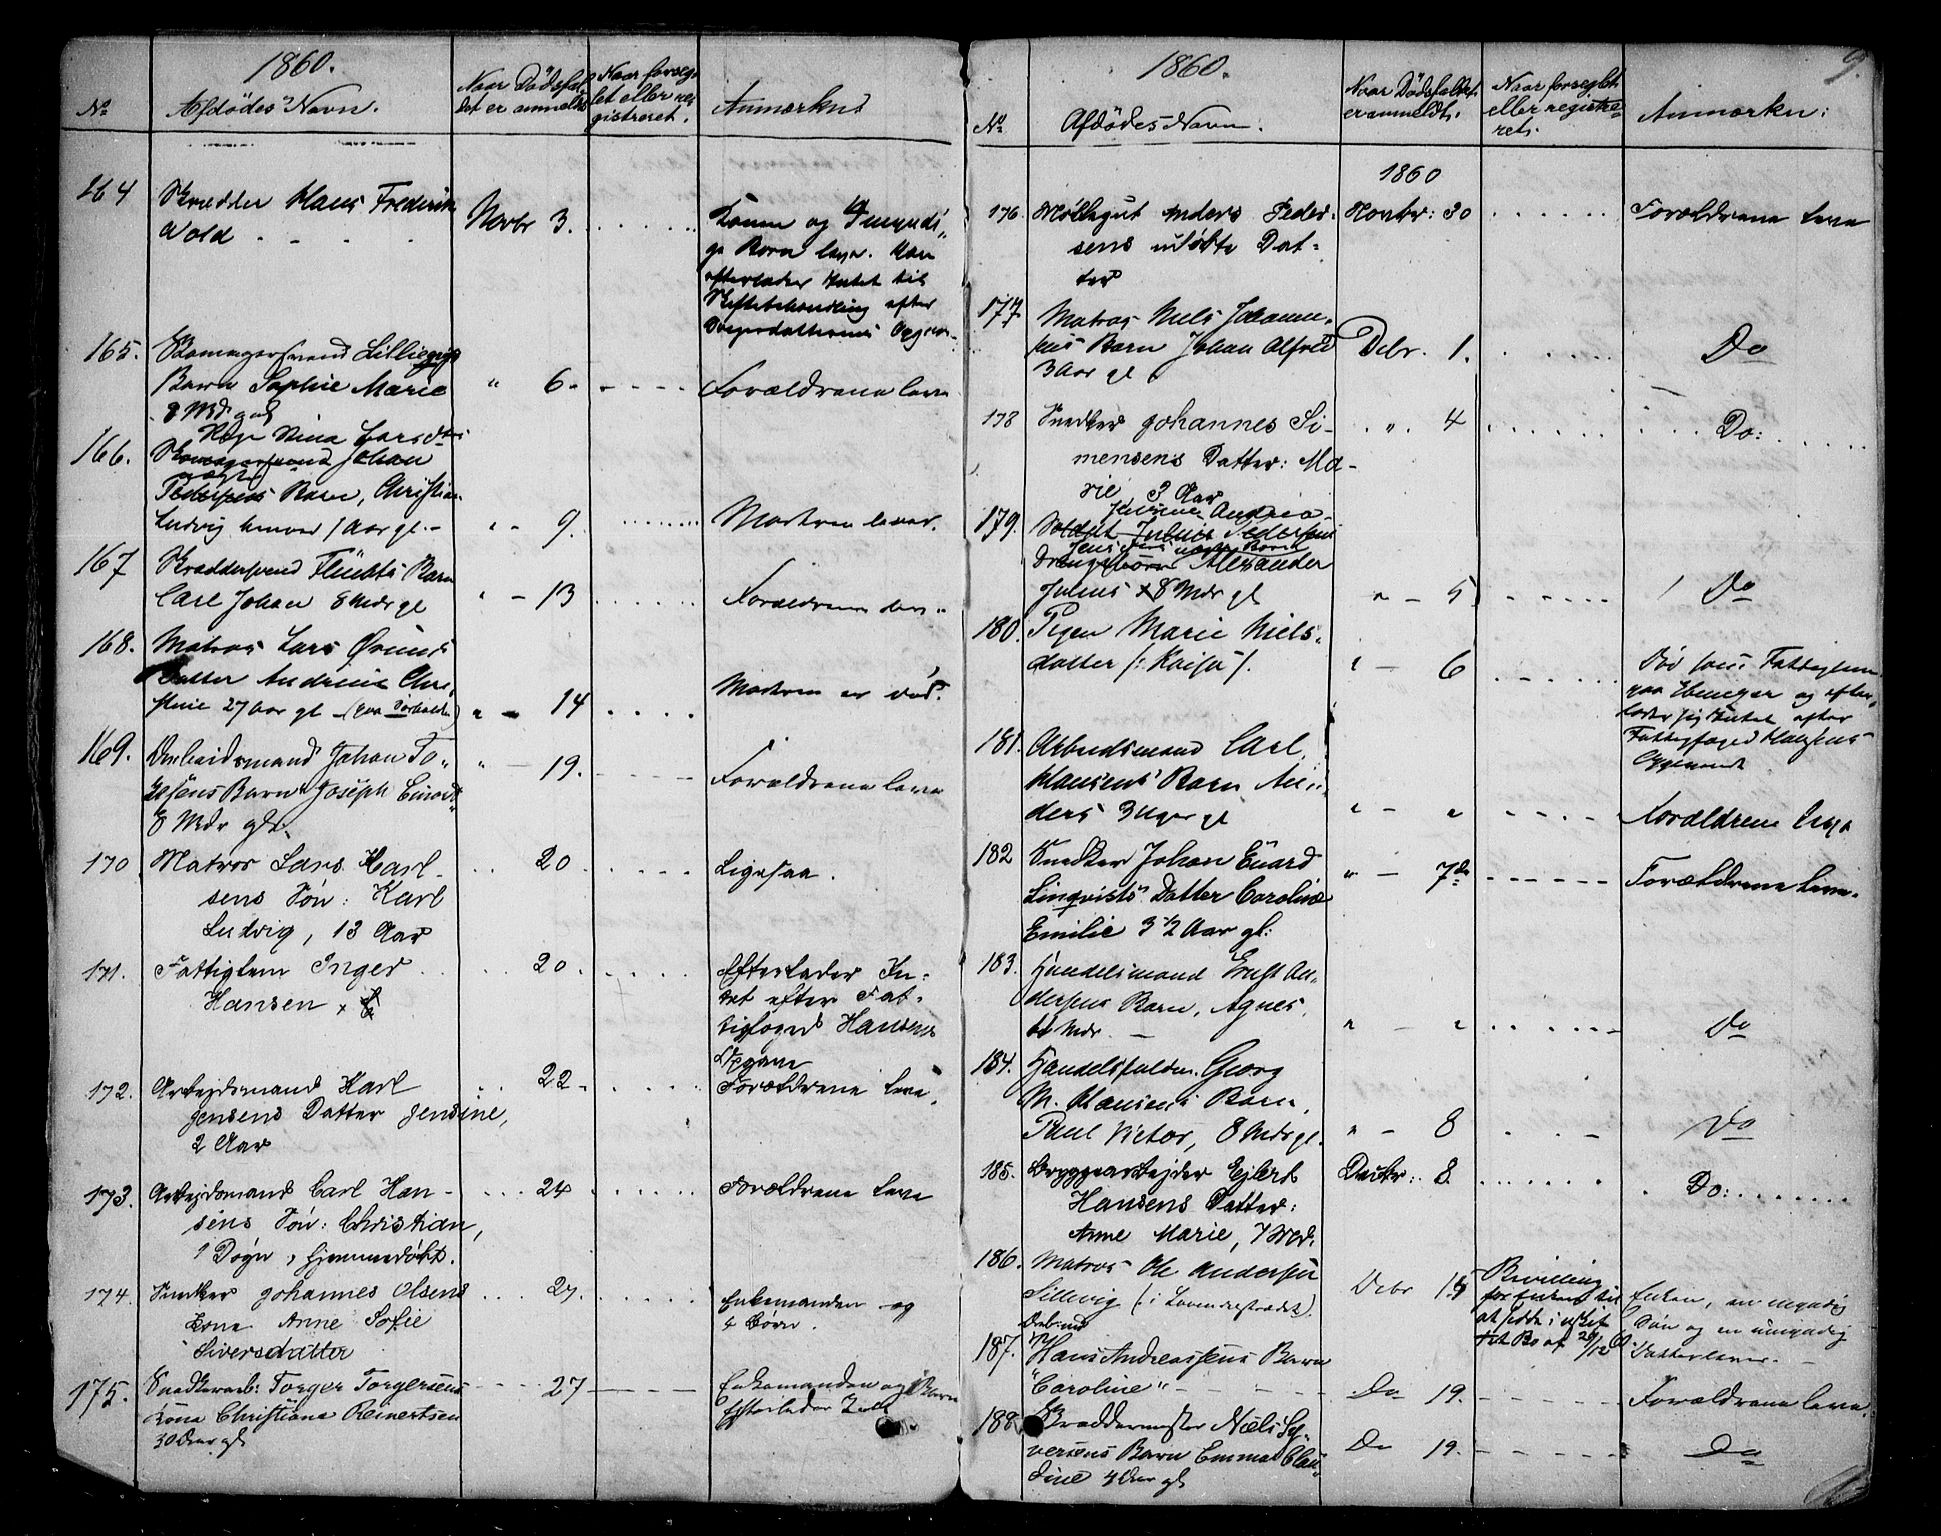 1860.
No
Afdödes Navn.
Naar Dödsfal-
det er anmeldt
Naar forseg-
let eller re-
gistreret.
Anmærkn
164
Skrædder Hans Frederik
Wold
Novbr 3.
Konen og 4 umyndi-
ge Børn lever. Han
efterlader Intet til
Skiftebehandling efter
165.
Skomagersvend
Barn Sophie Marie
8 Mdr gml
" 6.
Forældrene leve
166.
Pige Nina Larsdtr
Skomagersvend Johan
uægte
Pedersens Barn, Christian
Ludvig 1 Aar gl.
" - 9.
Moderen lever.
167
Skræddersvend Barn
Carl Johan 8 Mdr gl
" - 13
Forældrene leve
168.
Matros Lars
Datter Andrine Chri-
stine 27 Aar gl
" - 14
Moderen er død.
169.
Arbeidsmand Johan To-
Barn Joseph
8 Mdr gl.
" - 19.
Forældrene leve
170
Matros Lars Karl-
sens Søn: Karl
Ludvig, 13 Aar
20
Ligesaa.
171.
Fattiglem Inger
Hansen
20.
Efterlader In-
tet efter Fat-
tigfoged Hansens
Opgave
172.
Arbejdsmand Karl
Jensens Datter Jensine,
2 Aar
22
Forældrene leve.
173.
Arbejdsmand Carl Han-
sens Søn: Christian,
1 Døgn, hjemmedøbt.
24
Forældrene leve
174.
Snedker Johannes Olsens
Kone Anne Sofie
Siversdatter
27.
Enkemanden og
4 Børn.
175.
Snedkerarb: Torger Torgersens
Kone Christiane Reinertsen
30 Aar gl
27
Enkemanden og 1 Barn
Efterlader Intet
1860.
9.
No
Afdödes Navn.
Naar Dödsfaldet
er anmeldt.
Naar forseglet
eller registre-
ret.
Anmærkn:
1860
176.
Møllegut Anders Peder-
sens udøbte Dat-
ter
Novbr: 30
Forældrene leve
177
Matros Niels Johanne-
sens Barn Johan Alfred
3 Aar gl
Debr. 1.
Do
178
Snedker Johannes Si-
mensens Datter: Ma-
rie, 3 Aar
" 4
Do:
179.
Andrea
Soldat Julius Pedersens
Jensens uægte Barn
Drengebarn Alexander
Julius 8 Mdr gl
" - 5
Do
180.
Pigen Marie Niels-
datter /: Kaisa /.
" - 6
Død som Fattiglem
paa Ebenezer og efter-
lader sig Intet efter
Fattigfoged Hansens
Opgivende
181.
Arbeidsmand Carl
Hansens Barn An-
ders 3 Uger gl
" - "
Forældrene leve
182
Snedker Johan Edvard
Linqvists Datter Caroline
Emilie 3 1/2 Aar gl:
" - 7de
Forældrene leve.
183.
Handelsmand Ernst An-
dersens Barn, Agnes,
Mdr.
" - "
Do
184.
Handelsfuldm. Georg
M. Hansens Barn,
Paul Victor, 8 Mdr gl.
" - 8
Do
185.
Bryggearbejder Ejlert
Hansens Datter:
Anne Marie, 7 Md.
Decbr: 8.
Do:
186.
Matros Ole Andersen
Sillevig
Debr 15
Bevilling
for Enken til
at sidde i uskif-
tet Bo af 20/12 60
Enken, en umyndig
Søn og en umyndig
Datter lever.
187.
Arb.md
Hans Andreassens Barn
"Caroline"
Do 19.
Forældrene leve.
188
Skræddermester Niels Sy-
versens Barn Emma Clau-
dine 4 Aar gl
Do 19.
Do